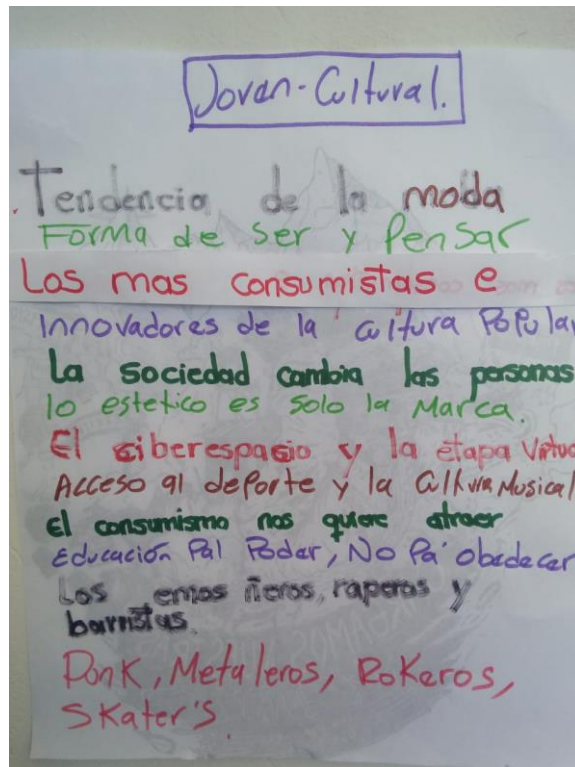 Joven-Cultural.
Tendencia de la moda
Forma de ser y Pensar
Los mas consumistas e
Innovadores de la cultura Popular
La sociedad cambia las personas
lo estetico es solo la Marca.
El ciberespacio y la etapa Virtual
Acceso al deporte y la Cultura Musical
El consumismo nos quiere atraer
Educación Pal Poder, No Pa' obedecer
Los emos ñeros, raperos y
barristas.
Ponk, Metaleros, Rokeros,
Skater's.